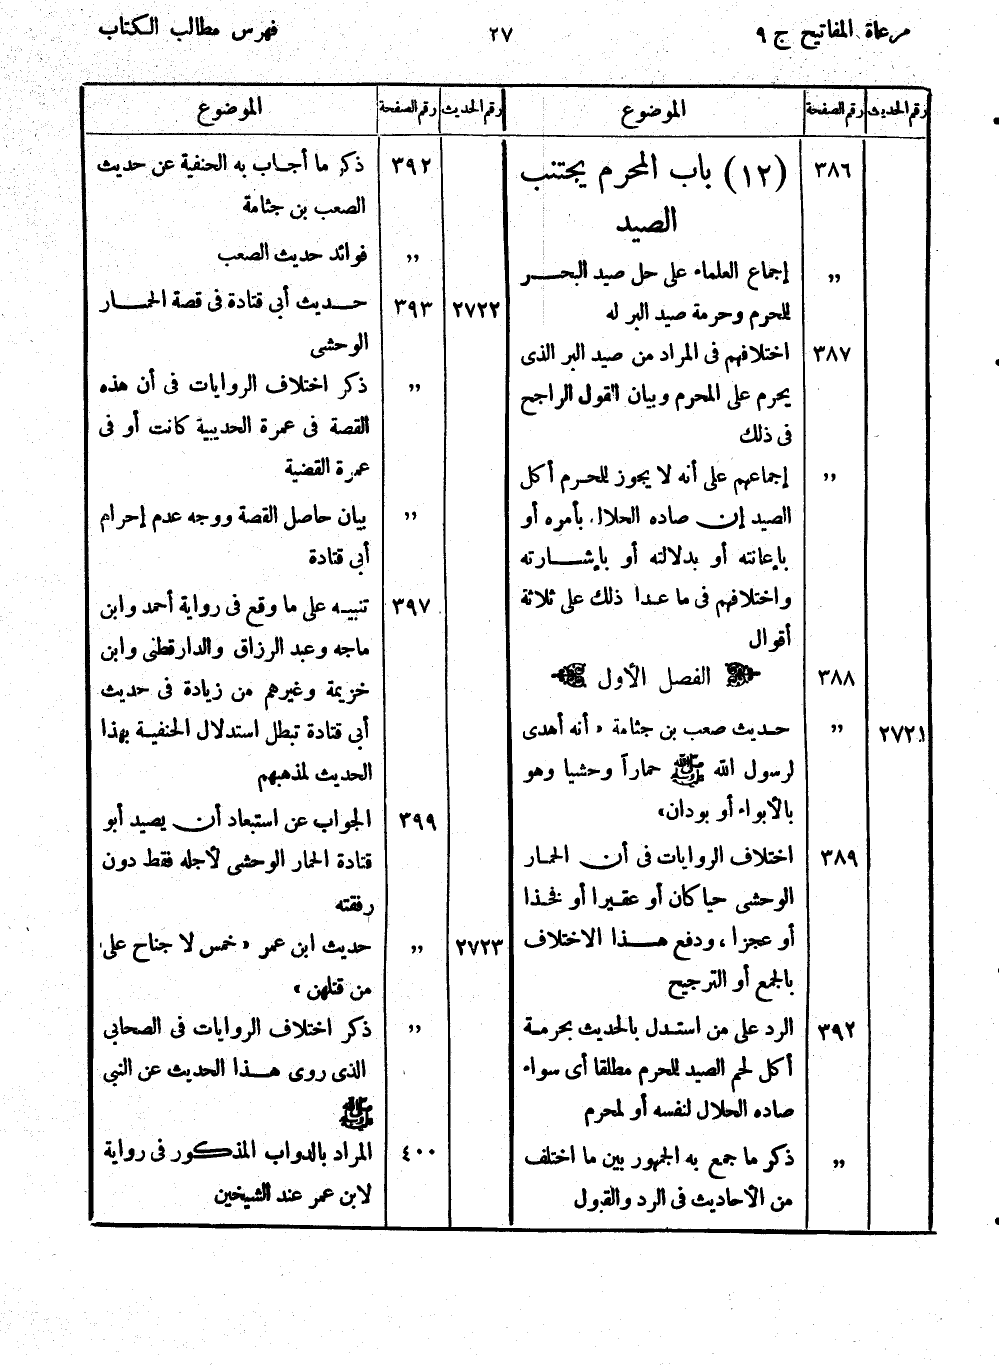 مرعاة المفاتيح ج ٩
٢٧
فهرس مطالب الكتاب
رقم الحديث رقم الصفحة الموضوع
٣٨٦ (١٢) باب المحرم يجتنب
الصيد
,, إجماع العلماء على حل صيد البحر
للحرم وحرمة صيد البر له
٣٨٧ اختلافهم فى المراد من صيد البر الذى
يحرم على المحرم وبيان القول الراجح
فى ذلك
,, إجماعهم على أنه لا يجوز للحرم أكل
الصيد إن صاده الحلال بأمره أو
بإعانته أو بدلالته أو بإشارته
واختلافهم فى ما عدا ذلك على ثلاثة
أقوال
٣٨٨ الفصل الأول
٢٧٢١ ,, حديث صعب بن جثامة «أنه أهدى
لرسول الله ﷺ حماراً وحشيا وهو
بالأبواء أو بودان»
٣٨٩ اختلاف الروايات فى أن الحمار
الوحشى حيا كان أو عقيرا أو فخذا
أو عجزا، ودفع هذا الاختلاف
بالجمع أو الترجيح
٣٩٢ الرد على من استدل بالحديث بحرمة
أكل لحم الصيد للحرم مطلقا أى سواء
صاده الحلال لنفسه أو لمحرم
,, ذكر ما جمع به الجمهور بين ما اختلف
من الأحاديث فى الرد والقبول
رقم الحديث رقم الصفحة الموضوع
٣٩٢ ذكر ما أجاب به الحنفية عن حديث
الصعب بن جثامة
,, فوائد حديث الصعب
٢٧٢٢ ٣٩٣ حديث أبى قتادة فى قصة الحمار
الوحشى
,, ذكر اختلاف الروايات فى أن هذه
القصة فى عمرة الحديبية كانت أو فى
عمرة القضية
,, بيان حاصل القصة ووجه عدم إحرام
أبى قتادة
٣٩٧ تنبيه على ما وقع فى رواية أحمد وابن
ماجه وعبد الرزاق والدارقطنى وابن
خزيمة وغيرهم من زيادة فى حديث
أبى قتادة تبطل استدلال الحنفية بهذا
الحديث لمذهبهم
٣٩٩ الجواب عن استبعاد أن يصيد أبو
قتادة الحمار الوحشى لأجله فقط دون
رفقته
٢٧٢٣ ,, حديث ابن عمر «خمس لا جناح على
من قتلهن»
,, ذكر اختلاف الروايات فى الصحابى
الذى روى هذا الحديث عن النبى
ﷺ
٤٠٠ المراد بالدواب المذكور فى رواية
لابن عمر عند الشيخين